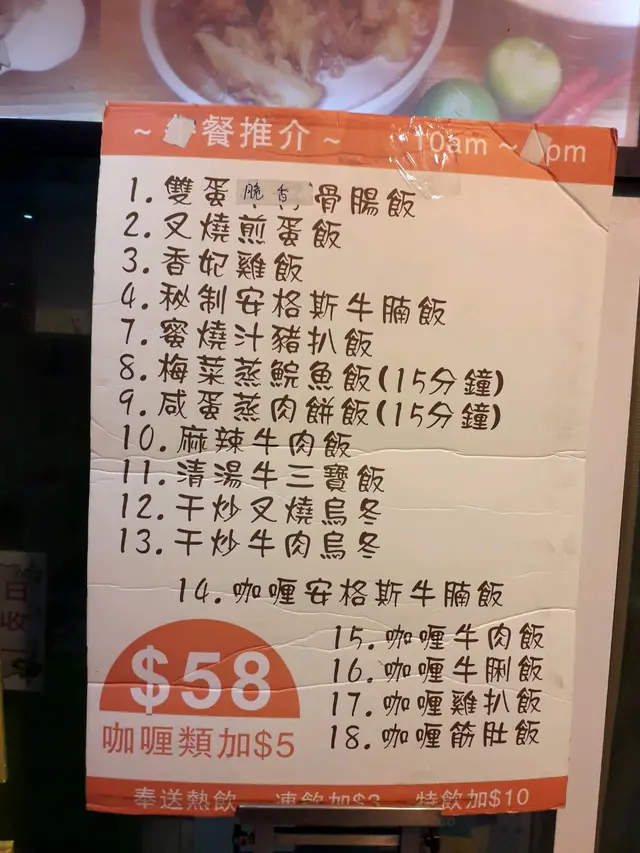 ~ 餐推介 ~ 10am ~ pm
1. 雙蛋脆香骨腸飯
2. 叉燒煎蛋飯
3. 香妃雞飯
4. 秘制安格斯牛腩飯
7. 蜜燒汁豬扒飯
8. 梅菜蒸鯇魚飯(15分鐘)
9. 咸蛋蒸肉餅飯(15分鐘)
10. 麻辣牛肉飯
11. 清湯牛三寶飯
12. 干炒叉燒烏冬
13. 干炒牛肉烏冬
14. 咖喱安格斯牛腩飯
15. 咖喱牛肉飯
16. 咖喱牛脷飯
17. 咖喱雞扒飯
18. 咖喱筋肚飯
$58
咖喱類加$5
奉送熱飲 凍飲加$3 特飲加$10
日
收